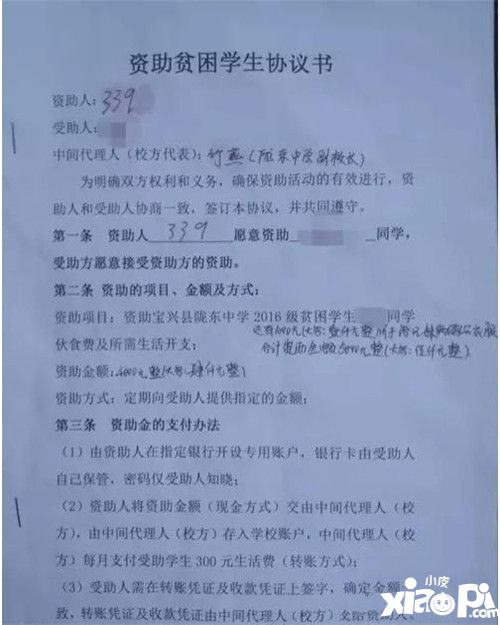 资助贫困学生协议书
资助人：339
受助人：
中间代理人（校方代表）：竹燕（陇东中学副校长）
为明确双方权利和义务，确保资助活动的有效进行，资
助人和受助人协商一致，签订本协议，并共同遵守。
第一条 资助人 339 愿意资助 同学，
受助方愿意接受资助方的资助。
第二条 资助的项目、金额及方式：
资助项目：资助宝兴县陇东中学 2016 级贫困学生 同学
还有1000元整(大写:壹仟元整)用于
伙食费及所需生活开支；
合计资助金额5000元整(大写:伍仟元整)
资助金额：4000元整(大写:肆仟元整)
资助方式：定期向受助人提供指定的金额；
第三条 资助金的支付办法
（1）由资助人在指定银行开设专用账户，银行卡由受助人
自己保管，密码仅受助人知晓；
（2）资助人将资助金额（现金方式）交由中间代理人（校
方），由中间代理人（校方）存入学校账户，中间代理人（校
方）每月支付受助学生 300 元生活费（转账方式）；
（3）受助人需在转账凭证及收款凭证上签字，确定金额一
致，转账凭证及收款凭证由中间代理人（校方）交给资助人。
小皮
xiaopi.com